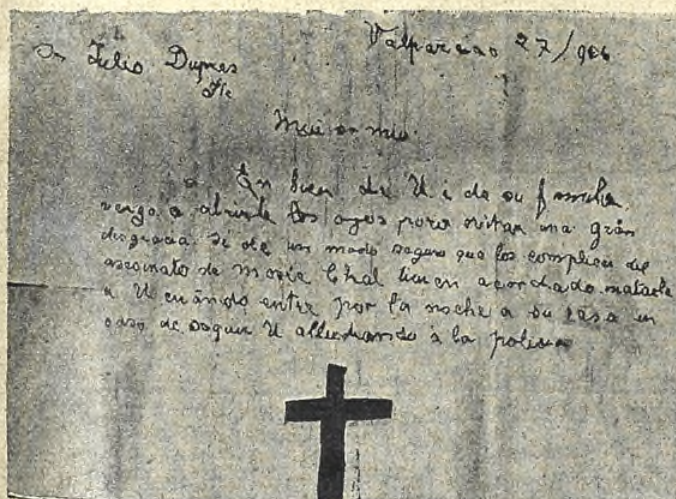 Valparaiso 27/906
Sr Julio Dupres
Pte
Mui sr mio
En bien de U i de su familia
vengo a abrirle los ojos para evitar una grán
desgracia. Sé de un modo seguro que los complices del
asecinato de maria Chal tienen acordado matarle
a U cuándo entre por la noche a su casa en
caso de seguir U alludando à la policia